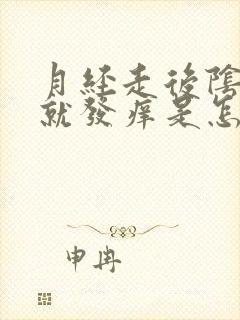 月經走後陰
就發痒是怎
申冉